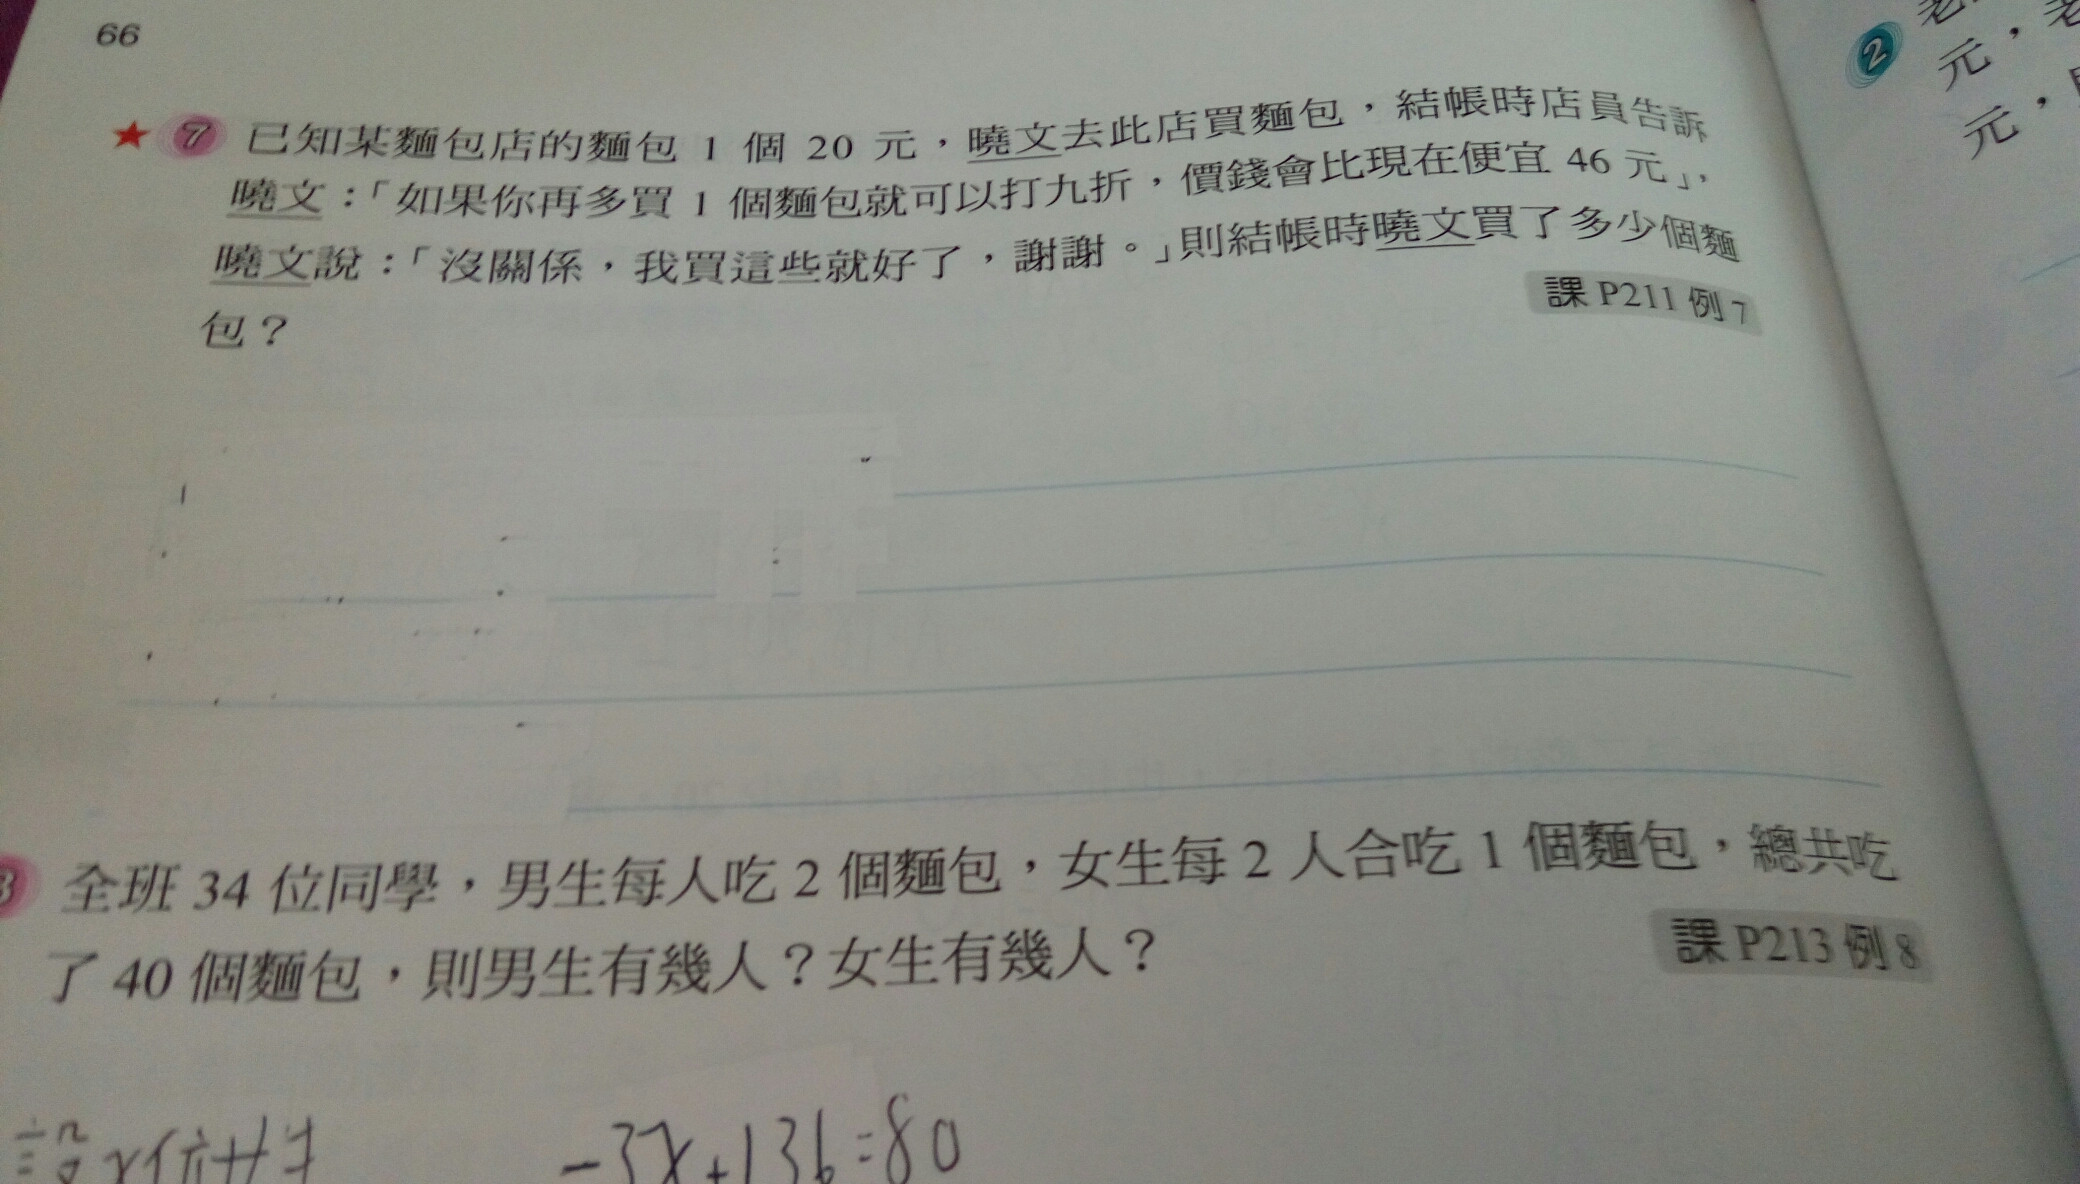 66
★ 7 已知某麵包店的麵包 1 個 20 元，曉文去此店買麵包，結帳時店員告訴
曉文：「如果你再多買 1 個麵包就可以打九折，價錢會比現在便宜 46 元」，
曉文說：「沒關係，我買這些就好了，謝謝。」則結帳時曉文買了多少個麵
包？
課 P211 例 7
全班 34 位同學，男生每人吃 2 個麵包，女生每 2 人合吃 1 個麵包，總共吃
了 40 個麵包，則男生有幾人？女生有幾人？
課 P213 例 8
-3x+136=80
2
元，
元，